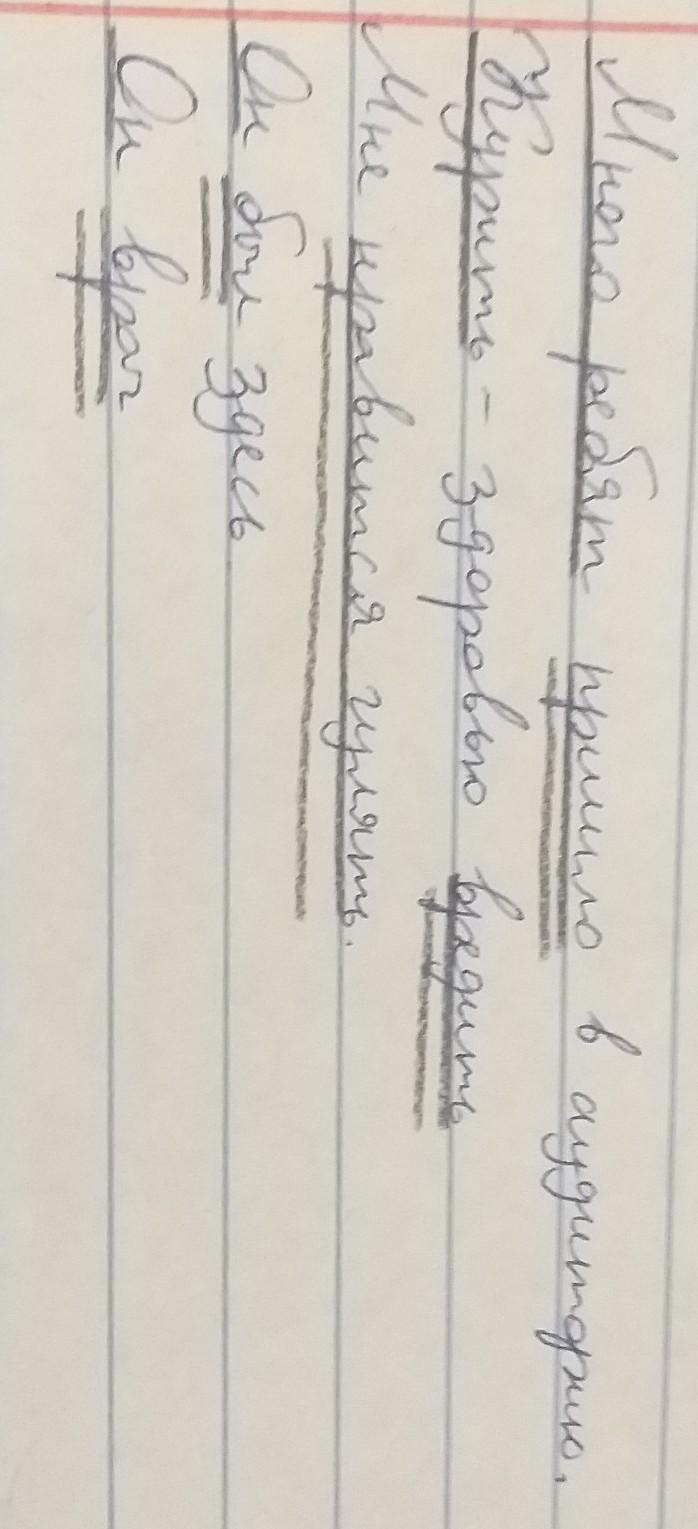 Много ребят пришло в аудиторию.
Курить - здоровью вредить
Мне нравится гулять.
Он был здесь
Он врач